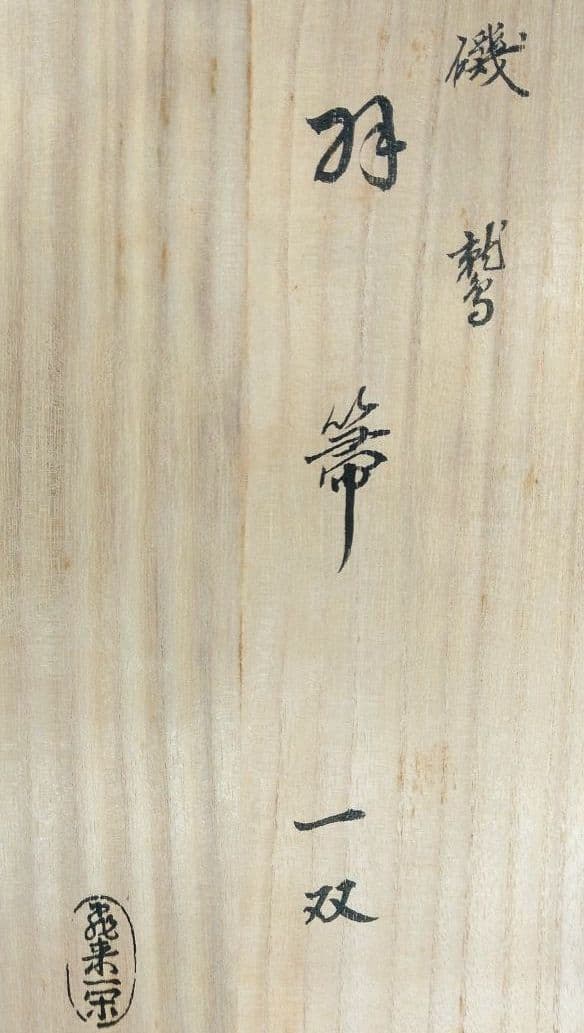 磯鷲
羽箒
一双